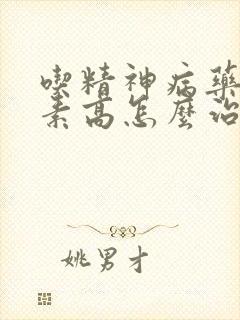 喫精神病藥
素高怎麼治
姚男才